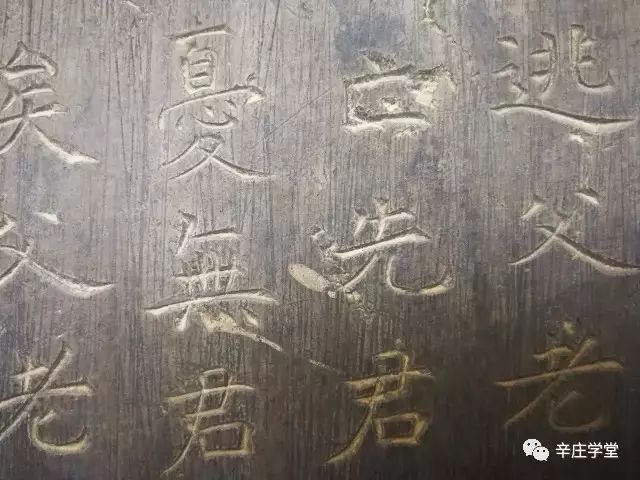 逃父老
先君
憂無君
矣父老
辛庄学堂